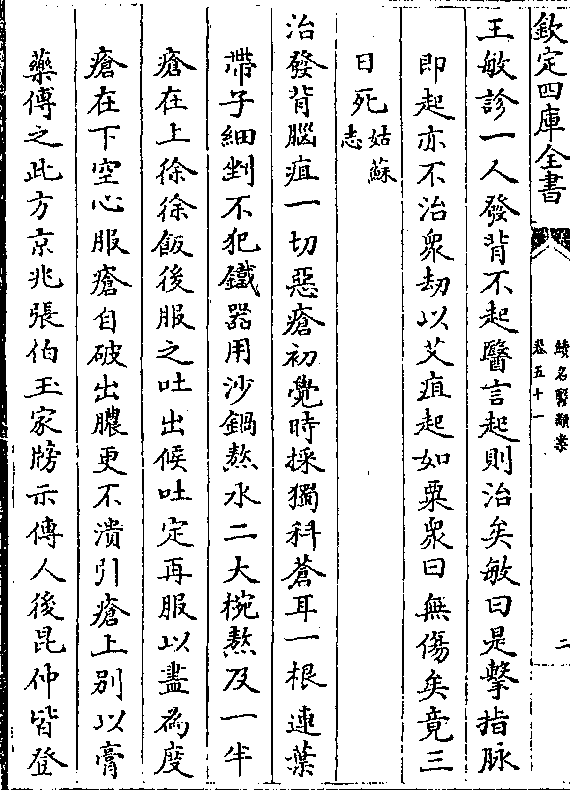 欽定四庫全書
續名醫類案
卷五十一
二
王敏診一人發背不起醫言起則治矣敏曰是擊指脉
即起亦不治衆刼以艾疽起如粟衆曰無傷矣竟三
日死姑蘇志
治發背腦疽一切惡瘡初覺時採獨科蒼耳一根連葉
帶子細剉不犯鐵器用沙鍋熬水二大椀熬及一半
瘡在上徐徐飯後服之吐出候吐定再服以盡為度
瘡在下空心服瘡自破出膿更不潰引瘡上别以膏
藥傅之此方京兆張伯玉家牓示傳人後昆仲皆登